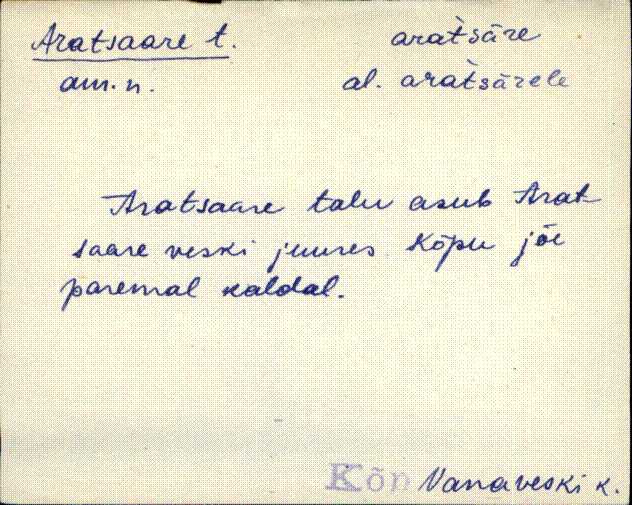 Aratsaare t. arat̀sāre
am. n. al. arat̀sārele
Aratsaare talu asub Arat-
saare veski juures Kõpu jõe
paremal kaldal.
Kõp Vanaveski k.